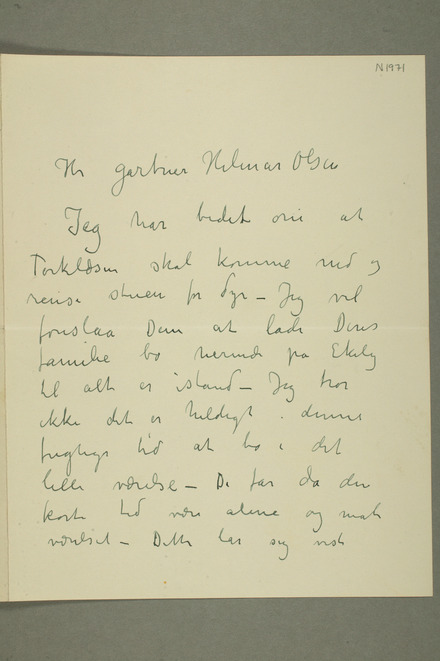 N 1971
Hr gartner Helmar Olsen
Jeg har bedet om at
skal komme ned og
rense stuen for dyr – Jeg vil
foreslaa Dem at lade Deres
familie bo nernede på Ekely
til alt er istand – Jeg tror
ikke det er heldigt i denne
fugtige tid at bo i det
lille værelse – De får da den
korte tid være alene og male
værelset – Dette lar sig vist